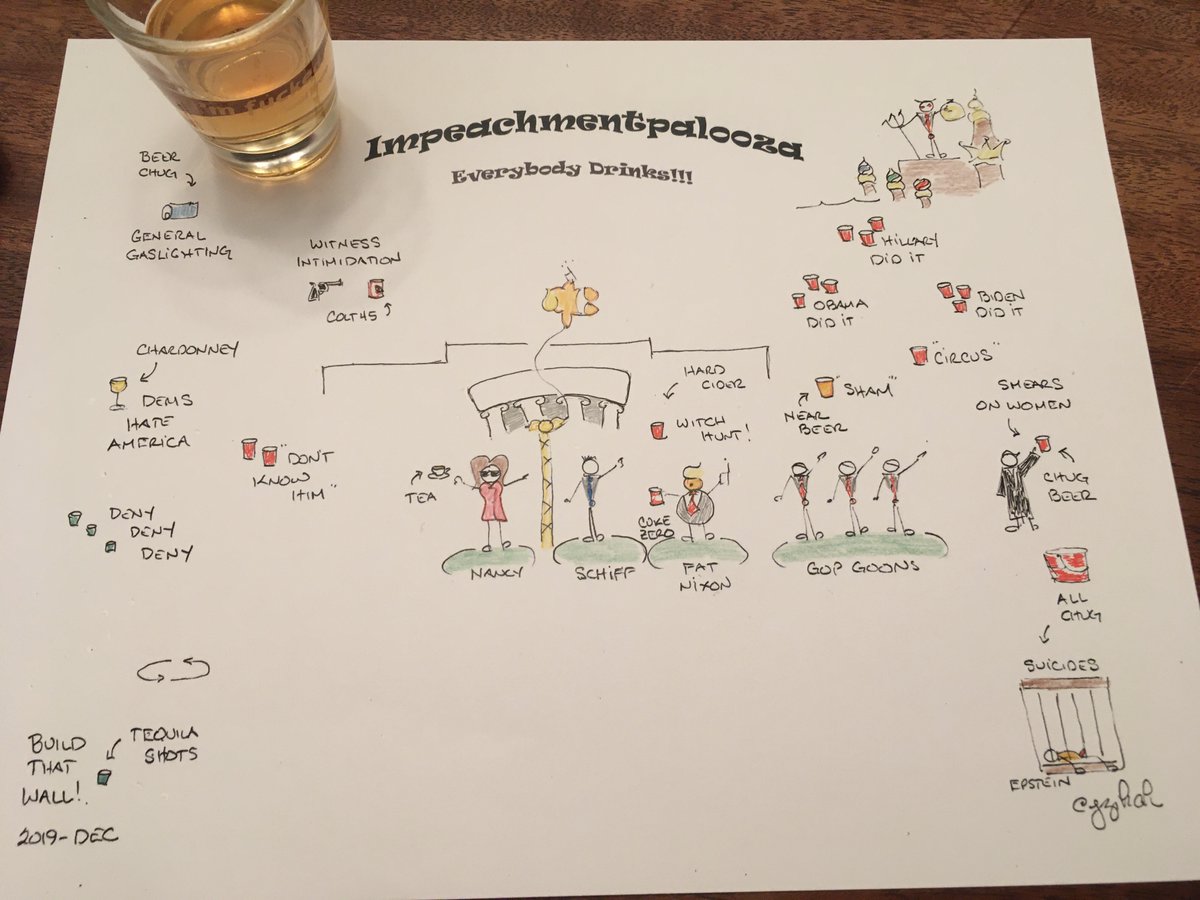 I'm fucke
Impeachmentpalooza
Everybody Drinks!!!
BEER
CHUG
GENERAL
GASLIGHTING
WITNESS
INTIMIDATION
COLT 45
HILLARY
DID IT
OBAMA
DID IT
BIDEN
DID IT
"CIRCUS"
CHARDONNEY
DEMS
HATE
AMERICA
HARD
CIDER
WITCH
HUNT!
"SHAM"
NEAR
BEER
SMEARS
ON WOMEN
CHUG
BEER
"DON'T
KNOW
HIM"
TEA
COKE
ZERO
DENY
DENY
DENY
NANCY
SCHIFF
FAT
NIXON
GOP GOONS
ALL
CHUG
SUICIDES
EPSTEIN
TEQUILA
SHOTS
BUILD
THAT
WALL!
2019-DEC